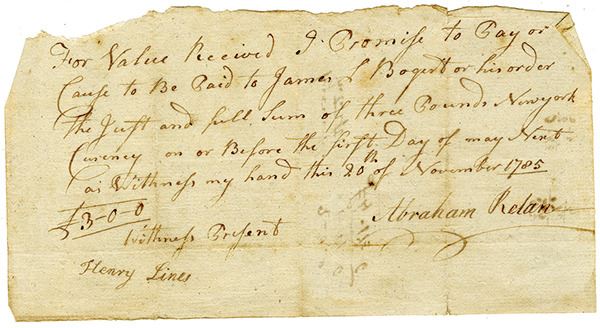 For Value Received I Promise to Pay or
Cause to Be Paid to James L Bogert or his order
the Just and full Sum of three Pounds Newyork
Cureney on or Before the first Day of may Next
as Withness my hand this 20th of November 1785
£3-0-0
Abraham
Withness Present
Henry Lines